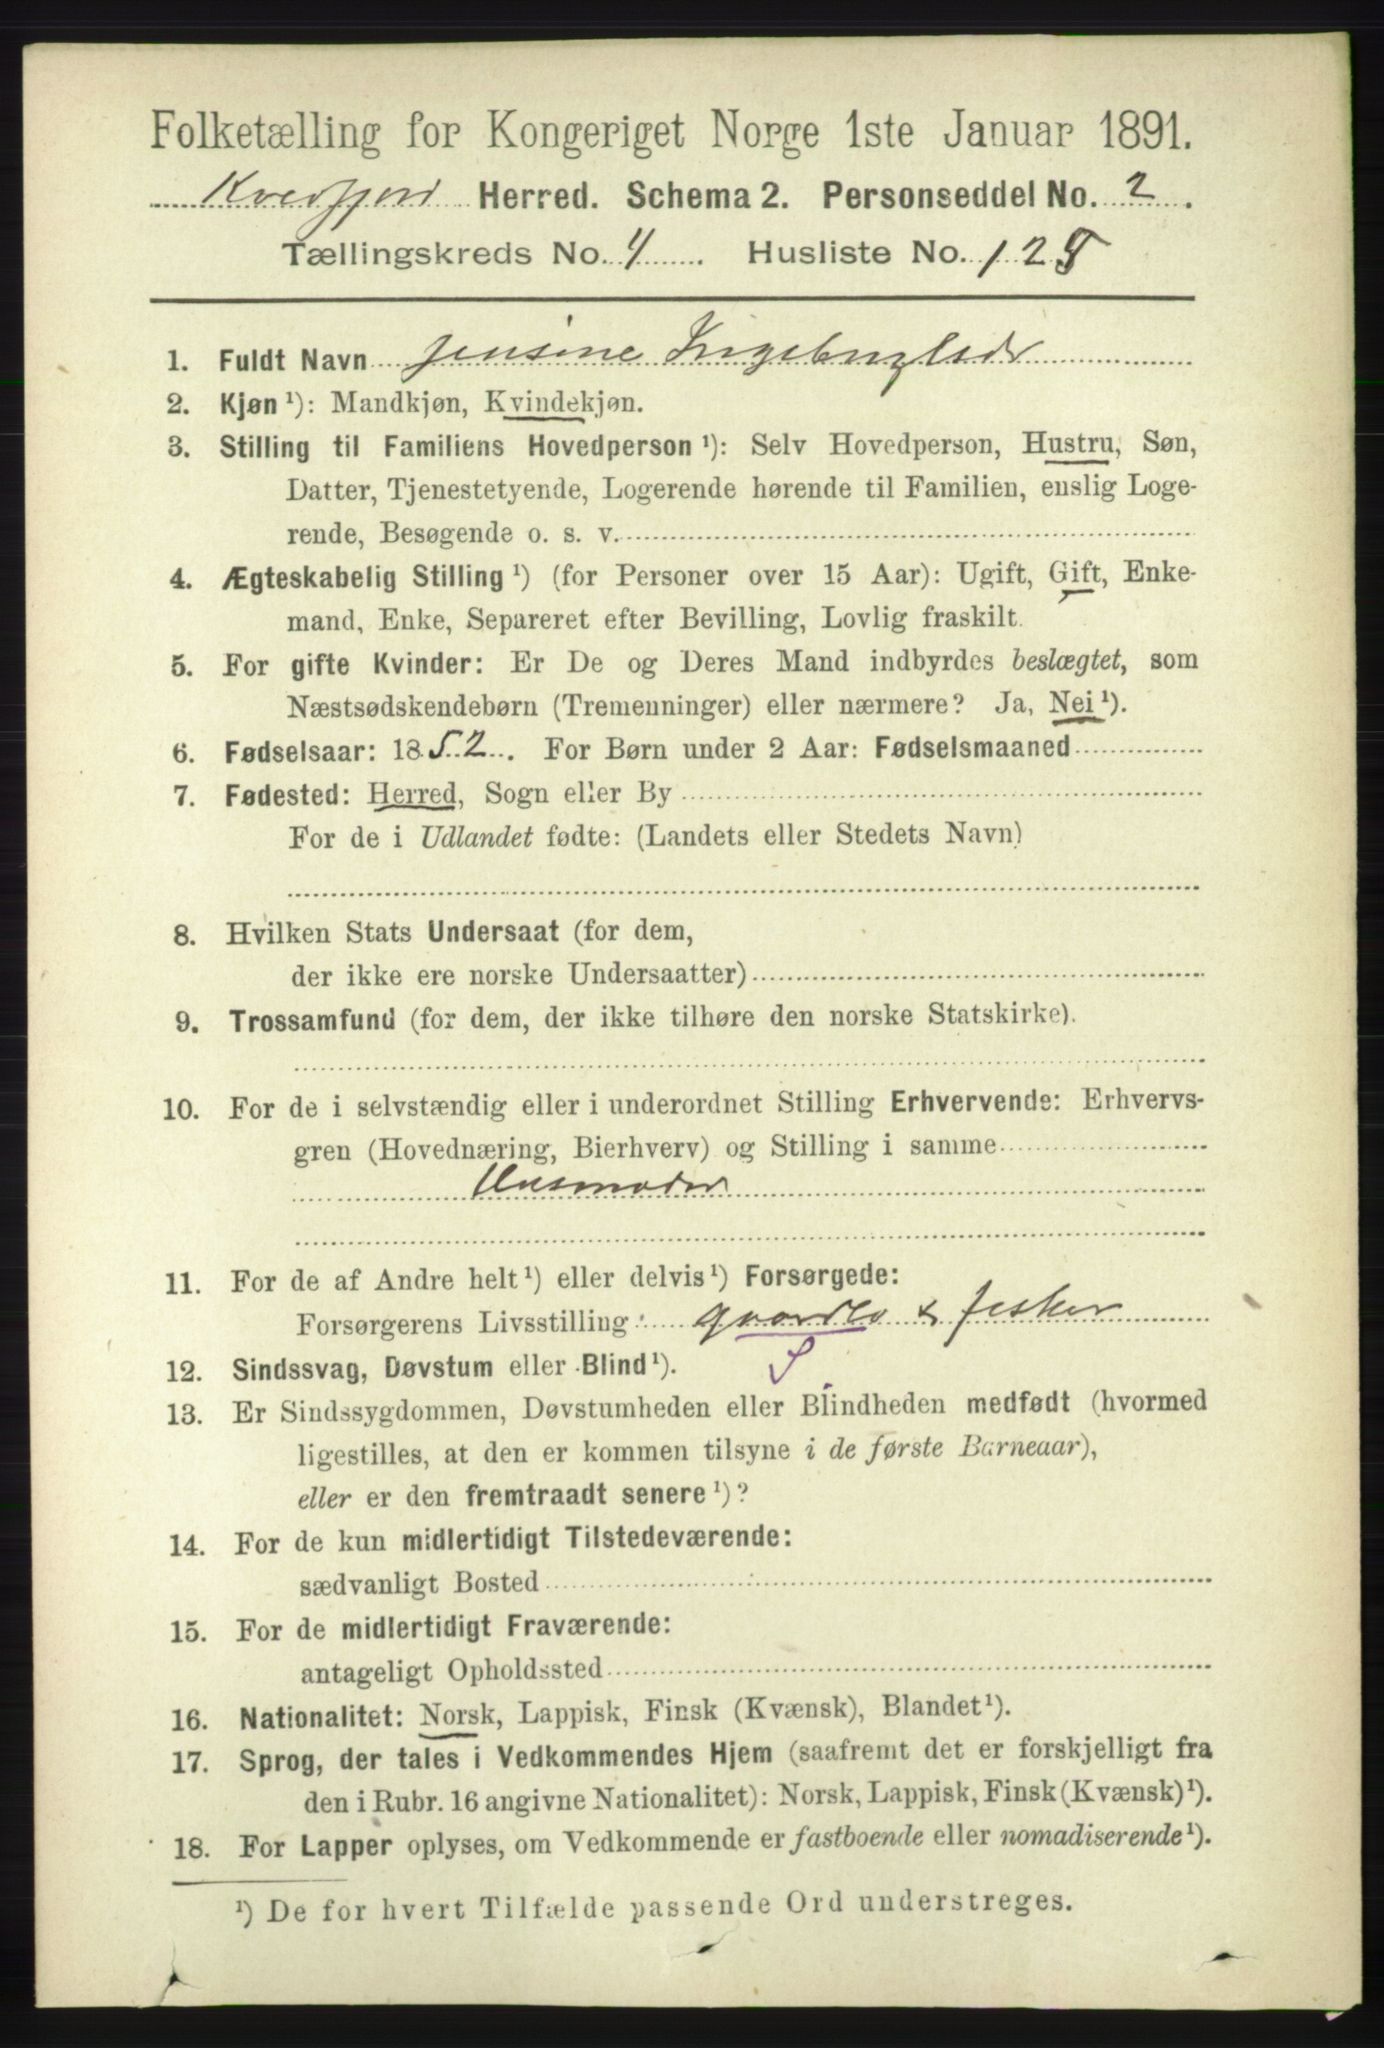 Folketælling for Kongeriget Norge 1ste Januar 1891.
Kvedfjord Herred. Schema 2. Personseddel No. 2.
Tællingskreds No. 4 Husliste No. 128
1. Fuldt Navn Jensine Ingebrigtsdr
2. Kjøn ¹): Mandkjøn, Kvindekjøn.
3. Stilling til Familiens Hovedperson ¹): Selv Hovedperson, Hustru, Søn,
Datter, Tjenestetyende, Logerende hørende til Familien, enslig Loge-
rende, Besøgende o. s. v.
4. Ægteskabelig Stilling ¹) (for Personer over 15 Aar): Ugift, Gift, Enke-
mand, Enke, Separeret efter Bevilling, Lovlig fraskilt.
5. For gifte Kvinder: Er De og Deres Mand indbyrdes beslægtet, som
Næstsødskendebørn (Tremenninger) eller nærmere? Ja, Nei ¹).
6. Fødselsaar: 1852. For Børn under 2 Aar: Fødselsmaaned
7. Fødested: Herred, Sogn eller By
For de i Udlandet fødte: (Landets eller Stedets Navn)
8. Hvilken Stats Undersaat (for dem,
der ikke ere norske Undersaatter)
9. Trossamfund (for dem, der ikke tilhøre den norske Statskirke).
10. For de i selvstændig eller i underordnet Stilling Erhvervende: Erhvervs-
gren (Hovednæring, Bierhverv) og Stilling i samme
Husmoder
11. For de af Andre helt ¹) eller delvis ¹) Forsørgede:
Forsørgerens Livsstilling: & fisker
S
12. Sindssvag, Døvstum eller Blind ¹).
13. Er Sindssygdommen, Døvstumheden eller Blindheden medfødt (hvormed
ligestilles, at den er kommen tilsyne i de første Barneaar),
eller er den fremtraadt senere ¹)?
14. For de kun midlertidigt Tilstedeværende:
sædvanligt Bosted
15. For de midlertidigt Fraværende:
antageligt Opholdssted
16. Nationalitet: Norsk, Lappisk, Finsk (Kvænsk), Blandet ¹).
17. Sprog, der tales i Vedkommendes Hjem (saafremt det er forskjelligt fra
den i Rubr. 16 angivne Nationalitet): Norsk, Lappisk, Finsk (Kvænsk) ¹).
18. For Lapper oplyses, om Vedkommende er fastboende eller nomadiserende ¹).
¹) De for hvert Tilfælde passende Ord understreges.